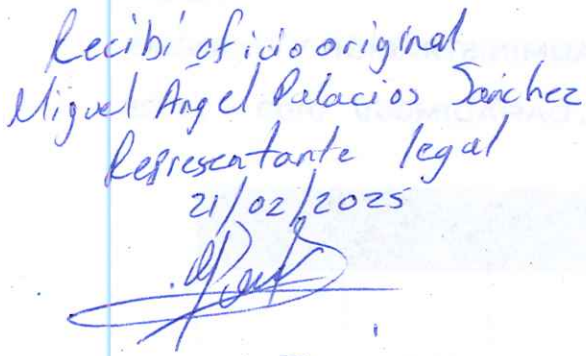 Recibí oficio original
Miguel Ángel Palacios Sánchez
Representante legal
21/02/2025